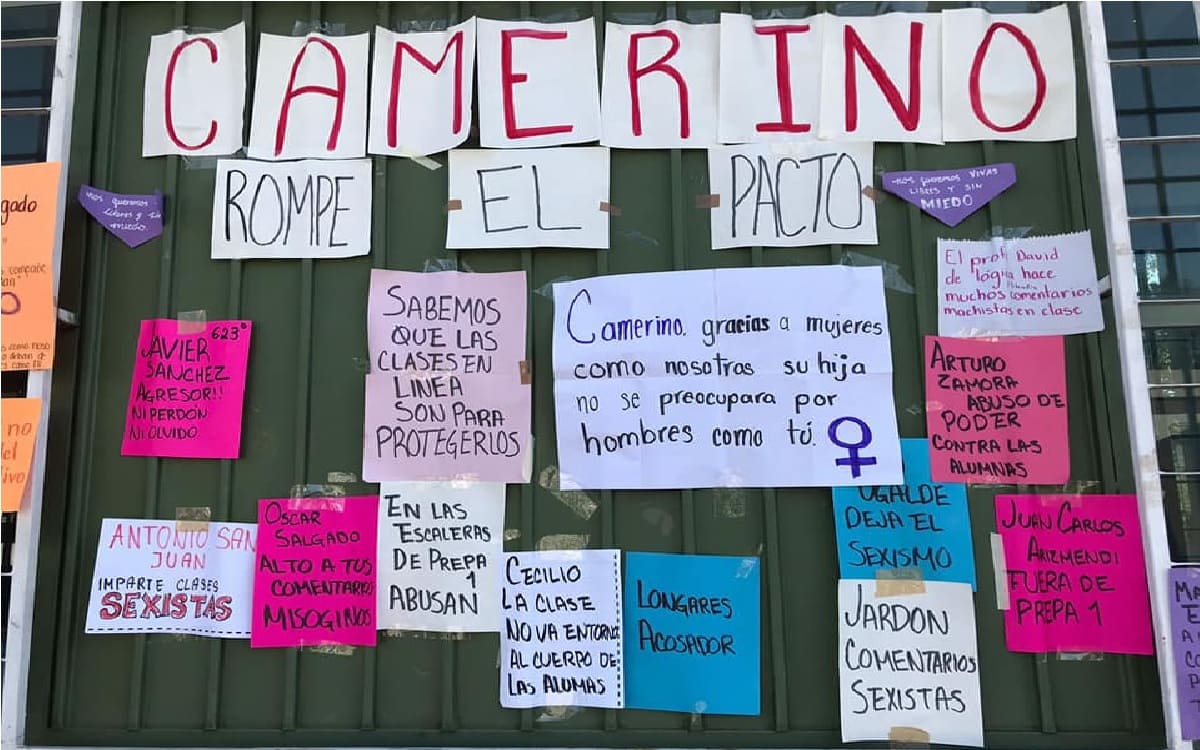 CAMERINO
ROMPE EL PACTO
gado
nos queremos
libres y sin
miedo
nos queremos VIVAS
LIBRES Y SIN
MIEDO
El prof. David
de lógica hace
muchos comentarios
machistas en clase
JAVIER 623°
SANCHEZ
AGRESOR!!
NI PERDÓN
NI OLVIDO
SABEMOS
QUE LAS
CLASES EN
LINEA
SON PARA
PROTEGERLOS
Camerino, gracias a mujeres
como nosotras su hija
no se preocupara por
hombres como tú.
ARTURO
ZAMORA
ABUSO DE
PODER
CONTRA LAS
ALUMNAS
no
del
ivo
ANTONIO SAN
JUAN
IMPARTE CLASES
SEXISTAS
OSCAR
SALGADO
ALTO A TUS
COMENTARIOS
MISOGINOS
EN LAS
ESCALERAS
DE PREPA
1
ABUSAN
CECILIO
LA CLASE
NO VA ENTORNO
AL CUERPO DE
LAS ALUMAS
LONGARES
ACOSADOR
UGALDE
DEJA EL
SEXISMO
JARDON
COMENTARIOS
SEXISTAS
JUAN CARLOS
ARIZMENDI
FUERA DE
PREPA 1